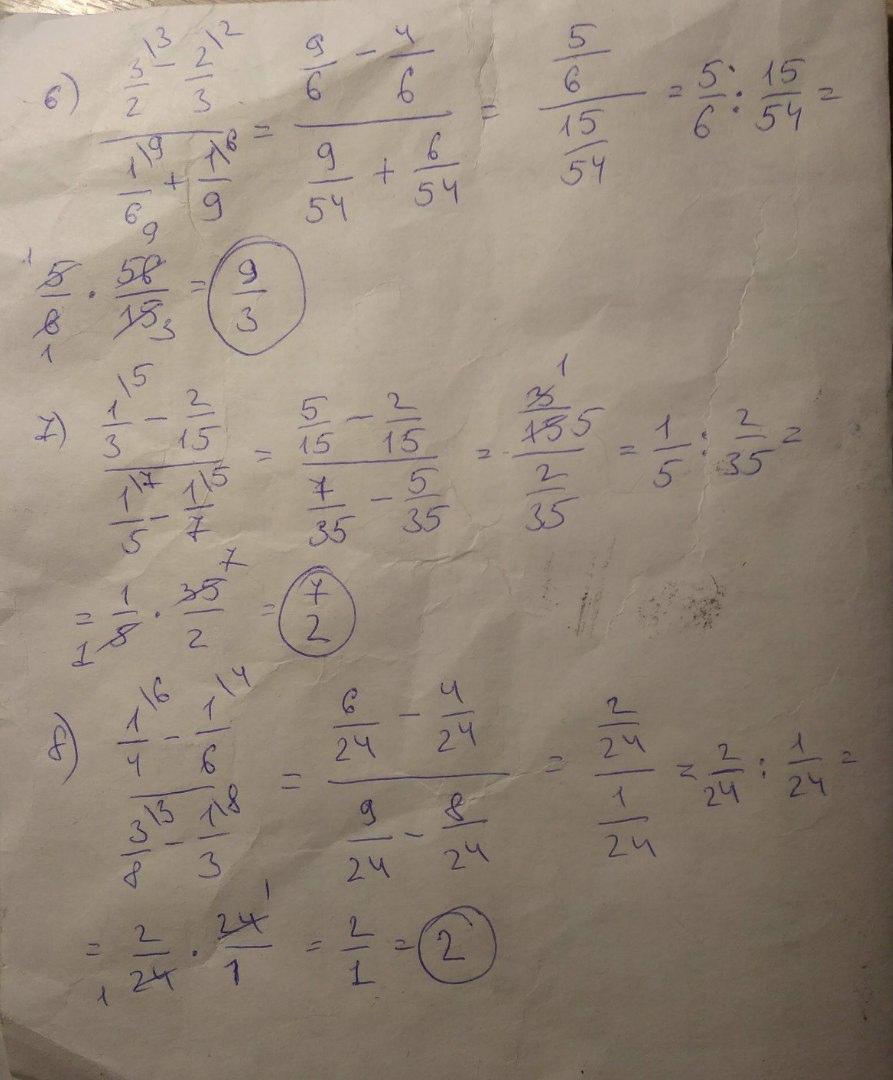 6) (3/2\3 - 2/3\2)/(1/6\9 + 1/9\6) = (9/6 - 4/6)/(9/54 + 6/54) = (5/6)/(15/54) = 5/6 : 15/54 =
5/6 · 54/15 = 9/3
7) (1/3\5 - 2/15)/(1/5\7 - 1/7\5) = (5/15 - 2/15)/(7/35 - 5/35) = (3/15)/(2/35) = 1/5 : 2/35 =
= 1/5 · 35/2 = 7/2
8) (1/4\6 - 1/6\4)/(3/8\3 - 1/3\8) = (6/24 - 4/24)/(9/24 - 8/24) = (2/24)/(1/24) = 2/24 : 1/24 =
= 2/24 · 24/1 = 2/1 = 2